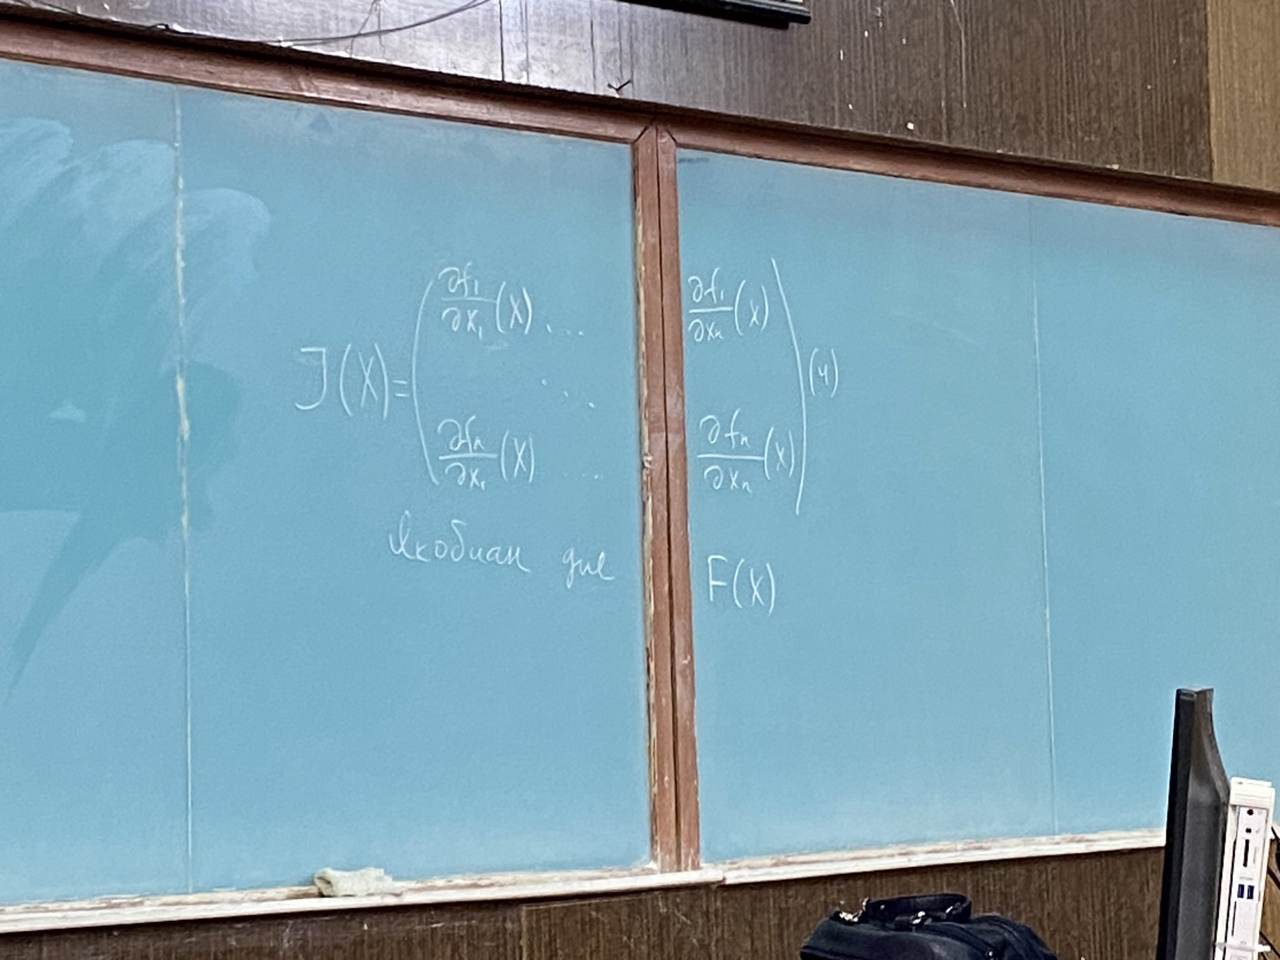 J(X) = ( ∂f₁/∂x₁ (X) ... ∂f₁/∂xₙ (X)
...
∂fₙ/∂x₁ (X) .... ∂fₙ/∂xₙ (X) ) (4)
Якобиан для F(X)